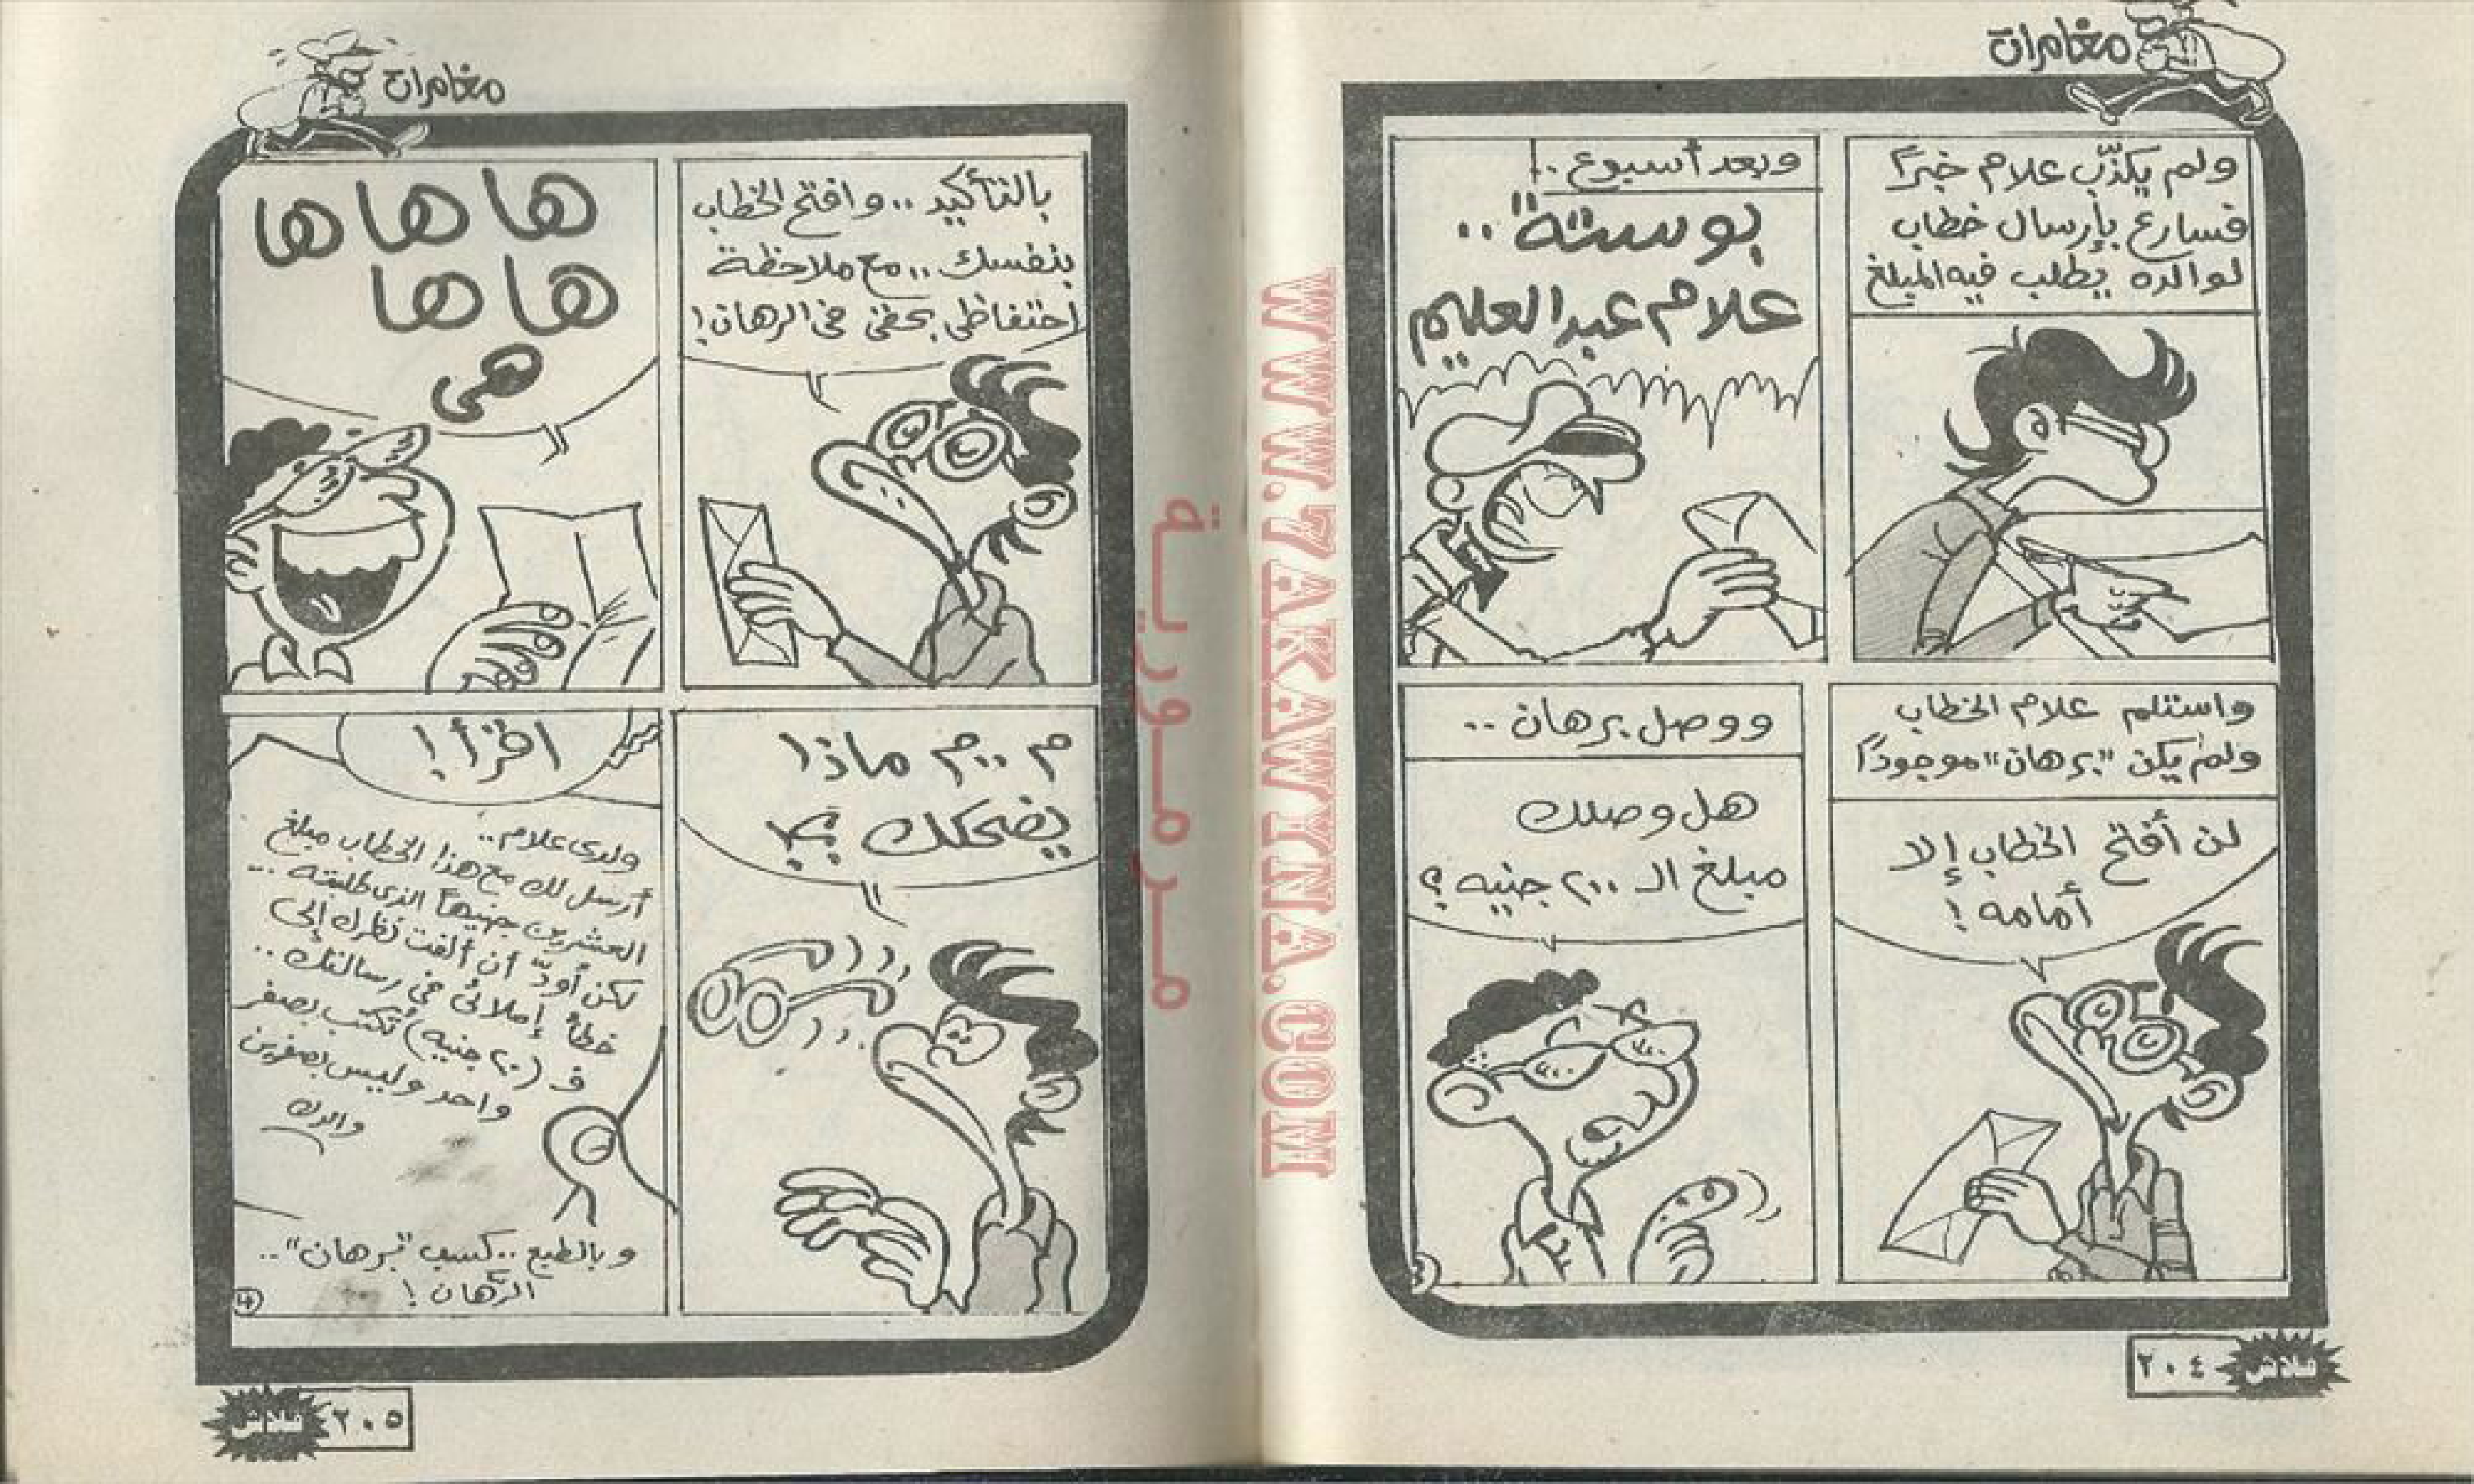 مغامرات
ولم يكذّب علام خبرًا
فسارع بإرسال خطاب
لوالده يطلب فيه المبلغ
وبعد أسبوع..
بوستة..
علام عبد العليم
واستلم علام الخطاب
ولم يكن "برهان" موجودًا
لن أفتح الخطاب إلا
أمامه!
ووصل برهان..
هل وصلك
مبلغ الـ ٢٠٠ جنيه؟
فلاش
٢٠٤
مغامرات
بالتأكيد.. وافتح الخطاب
بنفسك.. مع ملاحظة
احتفاظى بحقى فى الرهان!
ها ها ها
ها ها
هى
م..م ماذا
يضحكك ؟!
اقرأ!
ولدى علام..
أرسل لك مع هذا الخطاب مبلغ
العشرين جنيهاً الذى طلبته ..
لكن أودّ أن ألفت نظرك إلى
خطأ إملائى فى رسالتك..
فـ (٢٠ جنيه) تُكتب بصفر
واحد وليس بصفرين
والدك
وبالطبع.. كسب "برهان"..
الرّهان!
٤
فلاش
٢٠٥
WWW.ZAKANTWANA.COM
مرمورية